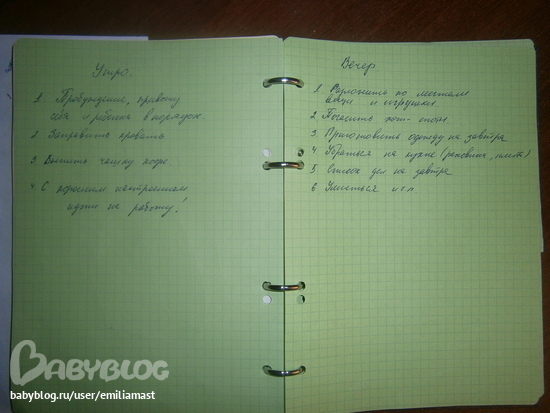 Утро.
1. Пробуждение, привожу
себя и ребенка в порядок
2. Заправить кровать
3. Выпить чашку кофе.
4. С хорошим настроением
идти на работу!
Вечер
1. Разложить по местам
вещи и игрушки
2 Погасить хот-споты
3. Приготовить одежду на завтра
4. Убраться на кухне (раковина, плита)
5. Список дел на завтра
6. Умыться и т.п.
BABYBLOG
babyblog.ru/user/emiliamast